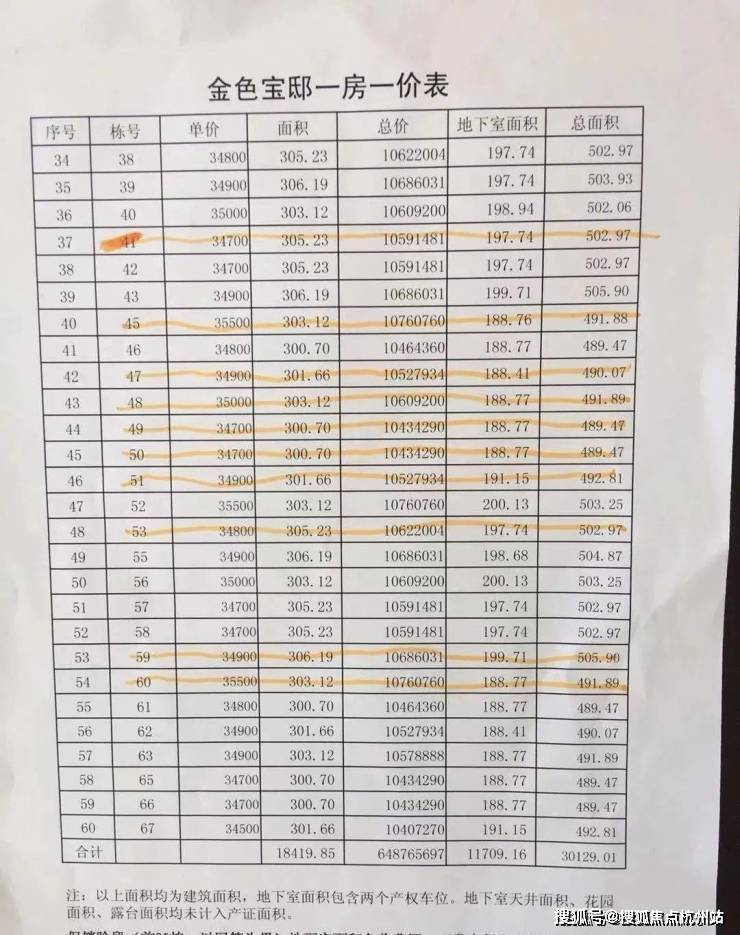 金色宝邸一房一价表
序号 栋号 单价 面积 总价 地下室面积 总面积
34 38 34800 305.23 10622004 197.74 502.97
35 39 34900 306.19 10686031 197.74 503.93
36 40 35000 303.12 10609200 198.94 502.06
37 41 34700 305.23 10591481 197.74 502.97
38 42 34700 305.23 10591481 197.74 502.97
39 43 34900 306.19 10686031 199.71 505.90
40 45 35500 303.12 10760760 188.76 491.88
41 46 34800 300.70 10464360 188.77 489.47
42 47 34900 301.66 10527934 188.41 490.07
43 48 35000 303.12 10609200 188.77 491.89
44 49 34700 300.70 10434290 188.77 489.47
45 50 34700 300.70 10434290 188.77 489.47
46 51 34900 301.66 10527934 191.15 492.81
47 52 35500 303.12 10760760 200.13 503.25
48 53 34800 305.23 10622004 197.74 502.97
49 55 34900 306.19 10686031 198.68 504.87
50 56 35000 303.12 10609200 200.13 503.25
51 57 34700 305.23 10591481 197.74 502.97
52 58 34700 305.23 10591481 197.74 502.97
53 59 34900 306.19 10686031 199.71 505.90
54 60 35500 303.12 10760760 188.77 491.89
55 61 34800 300.70 10464360 188.77 489.47
56 62 34900 301.66 10527934 188.41 490.07
57 63 34900 303.12 10578888 188.77 491.89
58 65 34700 300.70 10434290 188.77 489.47
59 66 34700 300.70 10434290 188.77 489.47
60 67 34500 301.66 10407270 191.15 492.81
合计 18419.85 648765697 11709.16 30129.01
注：以上面积均为建筑面积，地下室面积包含两个产权车位。地下室天井面积、花园
面积、露台面积均未计入产证面积。
搜狐号@搜狐焦点杭州站